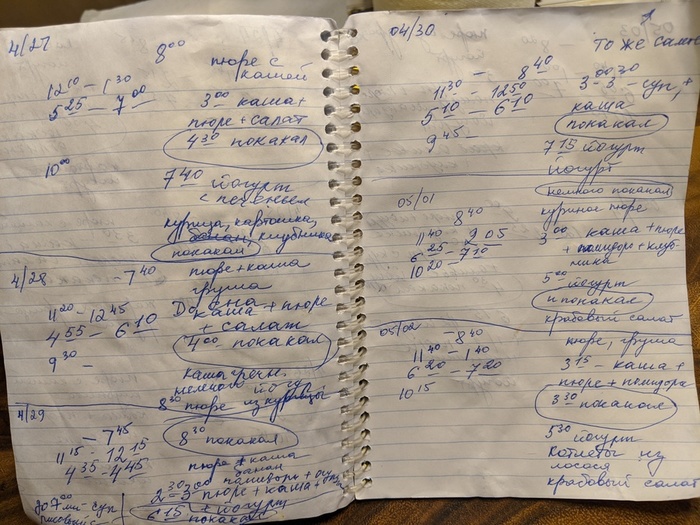 4/27
8⁰⁰ пюре с
кашей
12¹⁰ – 1³⁰
5²⁵ – 7⁰⁰
3⁰⁰ каша +
пюре + салат
4³⁰ покакал
10⁰⁰
7⁴⁰ йогурт
с печеньем
курица, картошка,
клубника
покакал
4/28
– 7⁴⁰
пюре + каша
груша
11²⁰ – 12⁴⁵
4⁵⁵ – 6¹⁰
9³⁰ –
каша + пюре
+ салат
4⁰⁰ покакал
каша гречн.
немного йогу
8³⁰ пюре из курицы
4/29
– 7⁴⁵
11¹⁵ – 12¹⁵
4³⁵ – 4⁴⁵
8³⁰ покакал
пюре + каша
банан
2³⁰ – 3⁰⁰ помидоры + огу
пюре + каша +
+ йогурт
6¹⁵ покакал
до 7⁰⁰
суп
04/30
то же самое
– 8⁴⁰
11³⁰ – 12⁵⁰
5¹⁰ – 6¹⁰
9⁴⁵ –
3⁰⁰ – 3³⁰ – суп, +
каша
покакал
7¹⁵ йогурт
йогурт
немного покакал
куриное пюре
05/01
8⁴⁰
11⁴⁰ – 2⁰⁵
6²⁵ – 7¹⁰
10²⁰ –
3⁰⁰ каша + пюре
+ помидор + клуб-
ника
5⁰⁰ йогурт
и покакал
крабовый салат
05/02
– 8⁴⁰
11⁴⁰ – 1⁴⁰
6²⁰ – 7²⁰
10¹⁵
пюре, груша
3¹⁵ – каша +
пюре + помидора
3³⁰ покакал
5³⁰ йогурт
котлеты из
лосося
крабовый салат